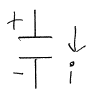 +
- i